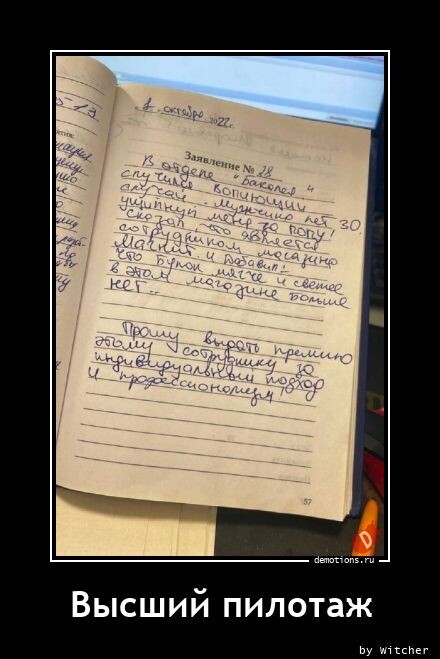 1 октября 2022г.
Заявление № 28
В отделе "Бакалея"
случился вопиющий
случай. мужчина лет 30,
ущипнул меня за попу!
сказал что является
сотрудником магазина
Магнит. и добавил!
что булок мягче и свежее
в этом магазине больше
нет..
Прошу выдать премию
этому сотруднику за
индивидуальный подход
и профессионализм!
57
demotions.ru
Высший пилотаж
by Witcher